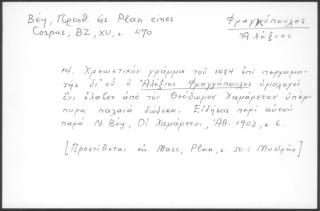 Βέη, Προσθ. εἰς Plan eines
Corpus, BZ, XV, σ. 470
Φραγκόπουλος
Ἀλέξιος
14. Χρεωστικὸν γράμμα τοῦ 1484 ἐπὶ περγαμη-
νῆς δι' οὗ ὁ Ἀλέξιος Φραγγόπουλος ὁμολογεῖ
ὅτι ἔλαβεν ἀπὸ τὸν Θεόδωρον Χαμάρετον ὑπέρ-
πυρα παλαιὰ δώδεκα. Εἰδήσεις περὶ αὐτοῦ
παρὰ Ν. Βέῃ, Οἱ Χαμάρετοι, Ἀθ. 1903, σ. 6.
[Προστίθεται ἐν Marc, Plan, σ. 50: Μυστρᾶς]